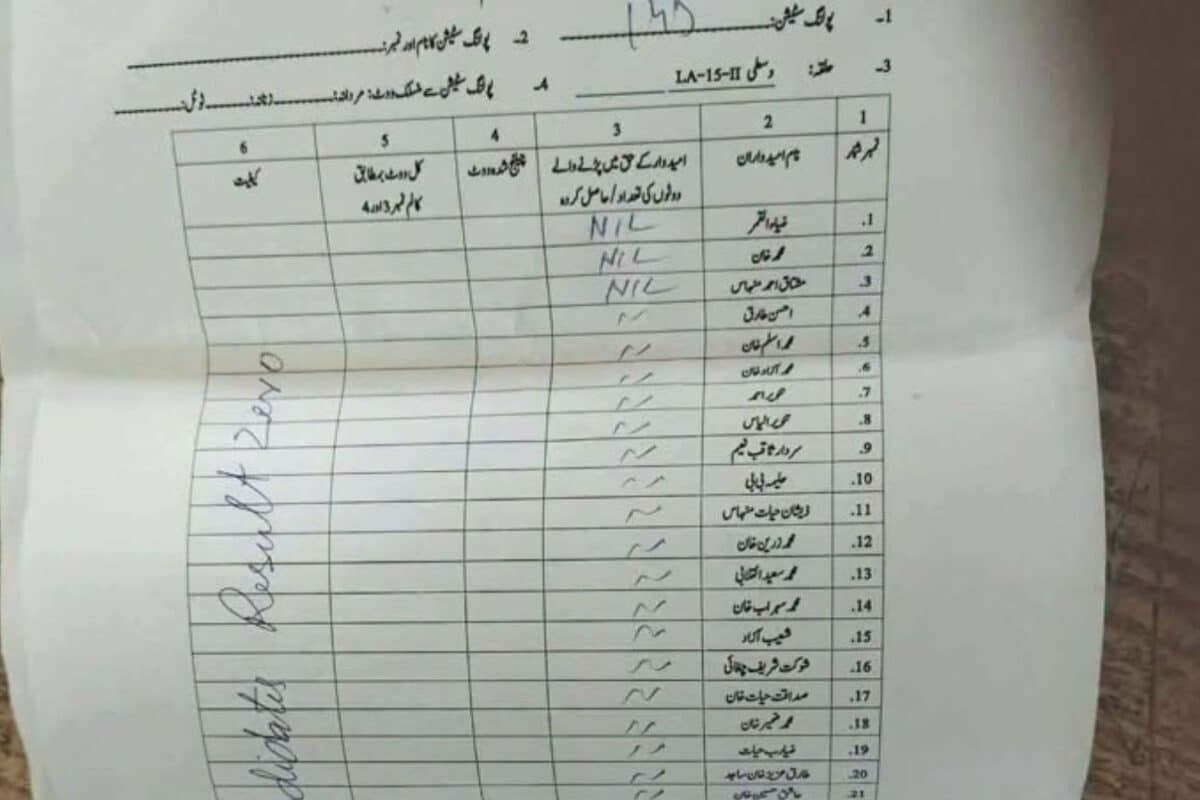 1- پولنگ سٹیشن: 2- پولنگ سٹیشن کا نام اور نمبر:
3- حلقہ: وسطی LA-15-II 4- پولنگ سٹیشن سے منسلک ووٹ: مردانہ: زنانہ: ٹوٹل:
1 2 3 4 5 6
نمبر شمار نام امیدواران امیدوار کے حق میں پڑنے والے ووٹوں کی تعداد/حاصل کردہ چیلنج شدہ ووٹ کل ووٹ بمطابق کالم نمبر 3 اور 4 کیفیت
1. ضیاء القمر NIL
2. محمد خان NIL
3. مشتاق احمد منہاس NIL
4. احسن طارق ~
5. محمد اسلم خان ~
6. محمد آزاد خان ~
7. ~
8. تنویر الیاس ~
9. سردار ثاقب نعیم ~
10. حلیمہ بی بی ~
11. ذیشان حیات منہاس ~
12. محمد زرین خان ~
13. محمد سعید انقلابی ~
14. محمد سہراب خان ~
15. شعیب آزاد ~
16. شوکت شریف چغتائی ~
17. صداقت حیات خان ~
18. محمد ضمیر خان ~
19. حیات ~
20. طارق عزیز خان ساجد ~
21. عاشق حسین خان ~
didates Result Zero